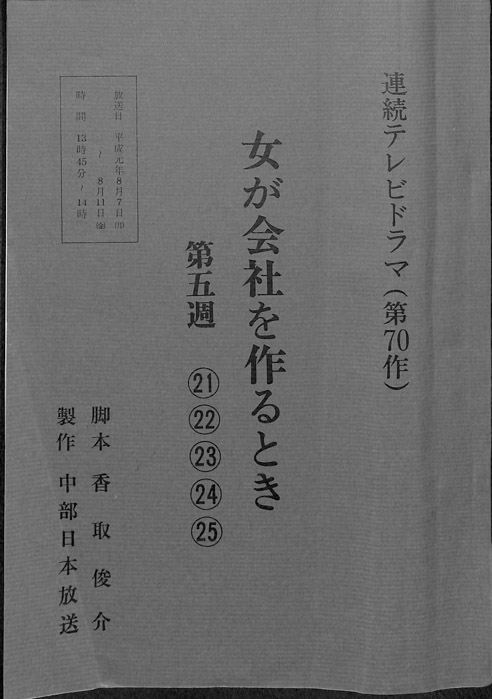 連続テレビドラマ(第70作)
女が会社を作るとき
第五週 ㉑㉒㉓㉔㉕
放送日 平成元年8月7日㈪
~8月11日㈮
時間 13時45分~14時
脚本 香取俊介
製作 中部日本放送